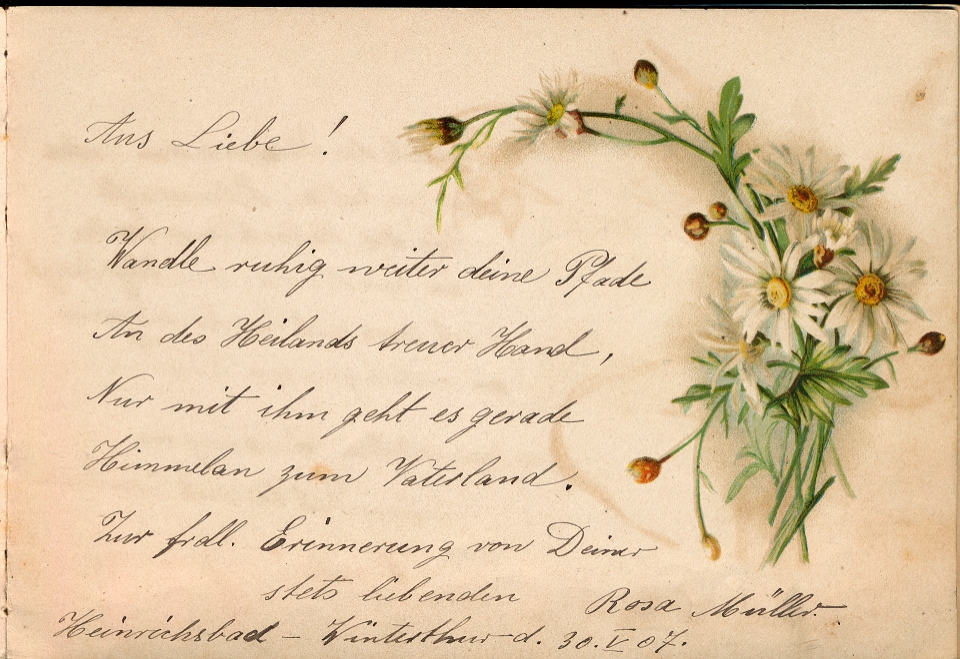 Aus Liebe!
Wandle ruhig weiter deine Pfade
An des Heilands treuer Hand,
Nur mit ihm geht es gerade
Himmelan zum Vaterland.
Zur frdl. Erinnerung von Deiner
stets liebenden Rosa Müller.
Heinrichsbad – Winterthur d. 30. V 07.